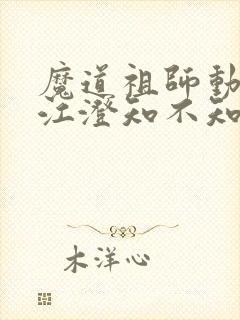 魔道祖師動
江澄知不知
木洋心